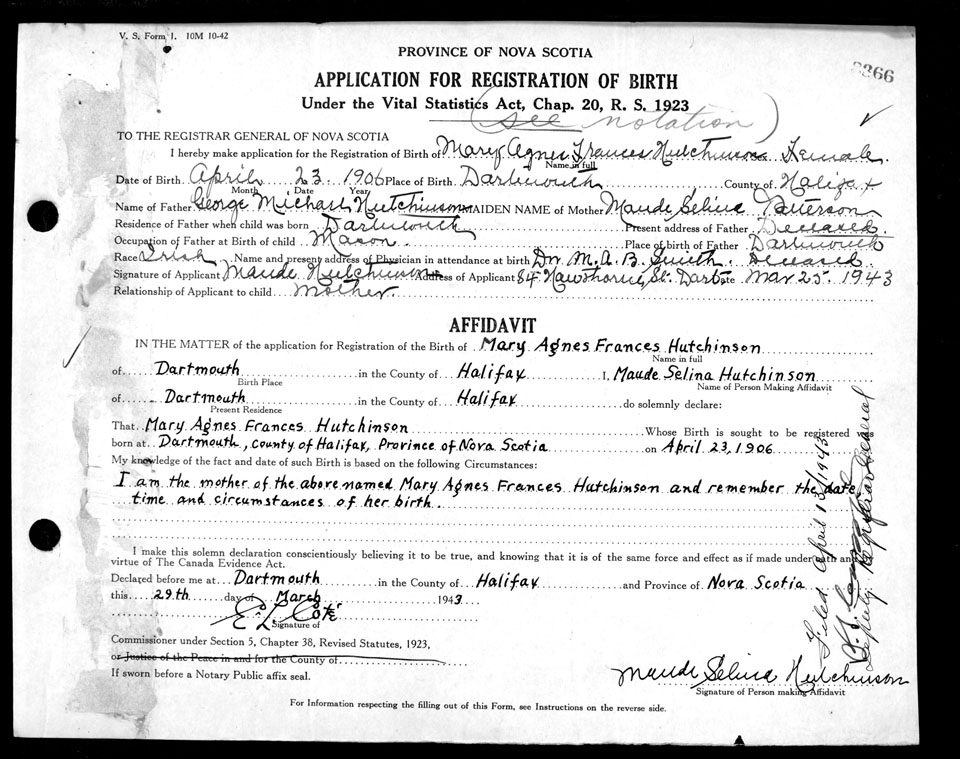 V. S. Form 1. 10M 10-42
PROVINCE OF NOVA SCOTIA
366
APPLICATION FOR REGISTRATION OF BIRTH
Under the Vital Statistics Act, Chap. 20, R. S. 1923
(see notation)
TO THE REGISTRAR GENERAL OF NOVA SCOTIA
I hereby make application for the Registration of Birth of Mary Agnes Frances Hutchinson Female
Name in full
Date of Birth April 23 1906 Place of Birth Dartmouth County of Halifax
Month Date Year
Name of Father George Michael Hutchinson MAIDEN NAME of Mother Maude Selina Paterson
Residence of Father when child was born Dartmouth Present address of Father Deceased
Occupation of Father at Birth of child Mason Place of birth of Father Dartmouth
Race Irish Name and present address of Physician in attendance at birth Dr. M. A. B. Smith Deceased
Signature of Applicant Maude Hutchinson Address of Applicant 84 Hawthorne St. Dart Date Mar 25. 1943
Relationship of Applicant to child mother.
AFFIDAVIT
IN THE MATTER of the application for Registration of the Birth of Mary Agnes Frances Hutchinson
Name in full
of Dartmouth in the County of Halifax I, Maude Selina Hutchinson
Birth Place Name of Person Making Affidavit
of Dartmouth in the County of Halifax do solemnly declare:
Present Residence
That Mary Agnes Frances Hutchinson Whose Birth is sought to be registered was
born at Dartmouth, County of Halifax, Province of Nova Scotia on April 23, 1906
My knowledge of the fact and date of such Birth is based on the following Circumstances:
I am the mother of the above named Mary Agnes Frances Hutchinson and remember the date,
time and circumstances of her birth.
I make this solemn declaration conscientiously believing it to be true, and knowing that it is of the same force and effect as if made under oath and
virtue of The Canada Evidence Act.
Declared before me at Dartmouth in the County of Halifax and Province of Nova Scotia
this 29th day of March 1943
E. L. Coté
Signature of
Commissioner under Section 5, Chapter 38, Revised Statutes, 1923,
or Justice of the Peace in and for the County of
If sworn before a Notary Public affix seal.
Maude Selina Hutchinson
Signature of Person making Affidavit
For Information respecting the filling out of this Form, see Instructions on the reverse side.
Filed April 13/1943
Deputy Registrar General